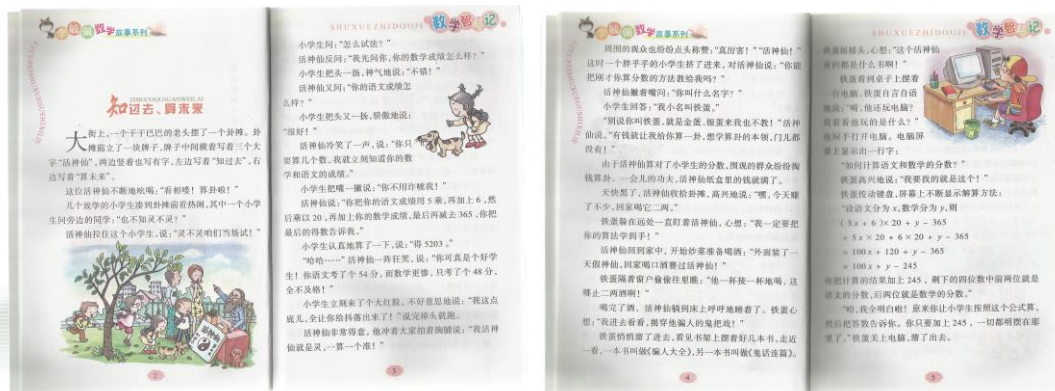 数学故事系列
ZHIGUOQUSUANWEILAI
知过去、算未来
大街上,一个干干巴巴的老头摆了一个卦摊。卦
摊前立了一块牌子,牌子中间横着写着三个大
字“活神仙”,两边竖着也写有字,左边写着“知过去”,右
边写着“算未来”。
这位活神仙不断地吆喝:“看相喽!算卦啦!”
几个放学的小学生凑到卦摊前看热闹,其中一个小学
生问旁边的同学:“也不知灵不灵?”
活神仙拉住这个小学生,说:“灵不灵咱们当场试!”
2
SHUXUEZHIDOUJI
数学智斗记
小学生问:“怎么试法?”
活神仙反问:“我先问你,你的数学成绩怎么样?”
小学生把头一扬,神气地说:“不错!”
活神仙又问:“你的语文成绩怎
么样?”
小学生把头又一扬,骄傲地说:
“很好!”
活神仙冷笑了一声,说:“你只
要算几个数,我就立刻知道你的数
学和语文的成绩。”
小学生把嘴一撇说:“你不用诈唬我!”
活神仙说:“你把你的语文成绩用5乘,再加上6,然
后乘以20,再加上你的数学成绩,最后再减去365,你把
最后的得数告诉我。”
小学生认真地算了一下,说:“得5203。”
“哈哈……”活神仙一阵狂笑,说:“你可真是个好学
生!你语文考了个54分,而数学更惨,只考了个48分,
全不及格!”
小学生立刻来了个大红脸,不好意思地说:“我这点
底儿,全让你给抖落出来了!”说完掉头就跑。
活神仙非常得意,他冲着大家拍着胸脯说:“我活神
仙就是灵,一算一个准!”
3
数学故事系列
周围的观众也纷纷点头称赞:“真厉害!”“活神仙!”
这时一个胖乎乎的小学生挤了进来,对活神仙说:“你能
把刚才你算分数的方法教给我吗?”
活神仙撇着嘴问:“你叫什么名字?”
小学生回答:“我小名叫铁蛋。”
“别说你叫铁蛋,就是金蛋、银蛋来我也不教!”活神
仙说,“有钱就让我给你算一卦,想学算卦的本领,门儿都
没有!”
由于活神仙算对了小学生的分数,围观的群众纷纷掏
钱算卦。一会儿的功夫,活神仙纸盒里的钱就满了。
天快黑了,活神仙收拾卦摊,高兴地说:“嘿,今天赚
了不少,回家喝它二两。”
铁蛋躲在远处一直盯着活神仙,心想:“我一定要把
你的算法学到手!”
活神仙回到家中,开始炒菜准备喝酒:“外面装了一
天假神仙,回家喝口酒赛过活神仙!”
铁蛋隔着窗户偷偷往里瞧:“他一杯接一杯地喝,这
哪止二两酒啊!”
喝完了酒,活神仙躺到床上呼呼地睡着了。铁蛋心
想:“我进去看看,揭穿他骗人的鬼把戏!”
铁蛋悄悄溜了进去,看见书架上摆着好几本书,走近
一看,一本书叫做《骗人大全》,另一本书叫做《鬼话连篇》。
4
SHUXUEZHIDOUJI
数学智斗记
铁蛋摇摇头,心想:“这个活神仙
看的都是什么书啊!”
铁蛋看到桌子上摆着
一台电脑,铁蛋自言自语
地说:“嗬,他还玩电脑?
我看看他玩的是什么?”
他随手打开电脑。电脑屏
幕上显示出一行字:
“如何计算语文和数学的分数?”
铁蛋高兴地说:“我要找的就是这个!”
铁蛋按动键盘,屏幕上不断显示解算方法:
“设语文分为x,数学分为y,则
(5x+6)×20+y-365
=5x×20+6×20+y-365
=100x+120+y-365
=100x+y-245
你把计算的结果加上245,剩下的四位数中前两位就是
语文的分数,后两位就是数学的分数。”
“哈,我全明白啦!原来你让小学生按照这个公式算,
然后把答数告诉你。你只要加上245,一切都明摆在那
里了。”铁蛋关上电脑,溜了出去。
5